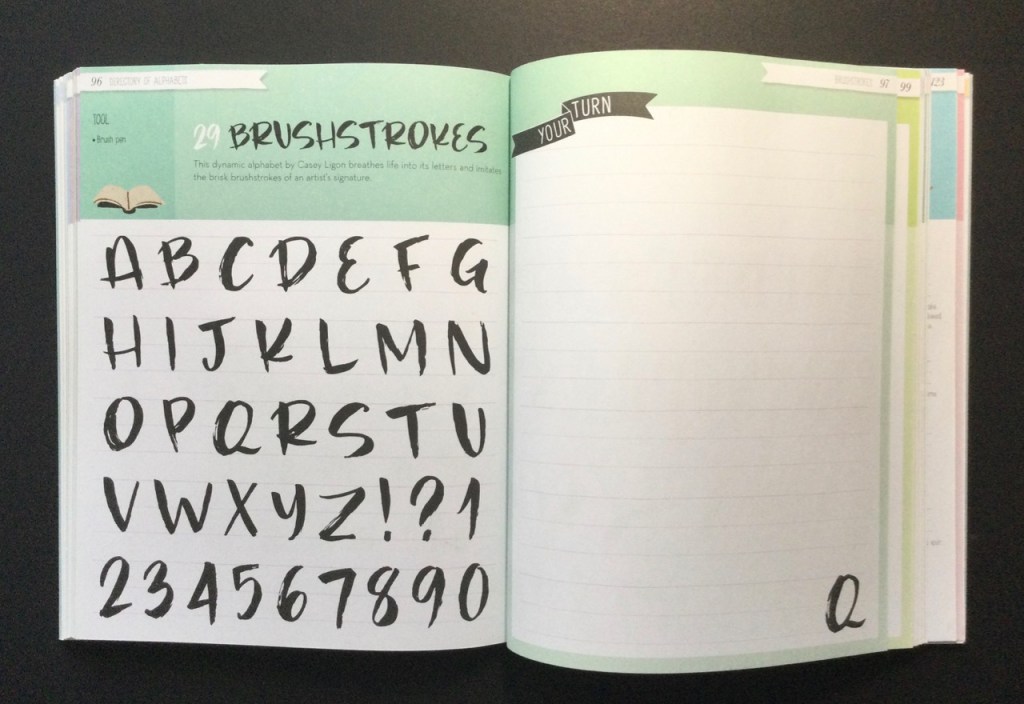 96 DIRECTORY OF ALPHABETS
TOOL
• Brush pen
29 BRUSHSTROKES
This dynamic alphabet by Casey Ligon breathes life into its letters and imitates
the brisk brushstrokes of an artist's signature.
A B C D E F G
H I J K L M N
O P Q R S T U
V W X Y Z ! ? 1
2 3 4 5 6 7 8 9 0
BRUSHSTROKES 97
99
123
YOUR TURN
Q